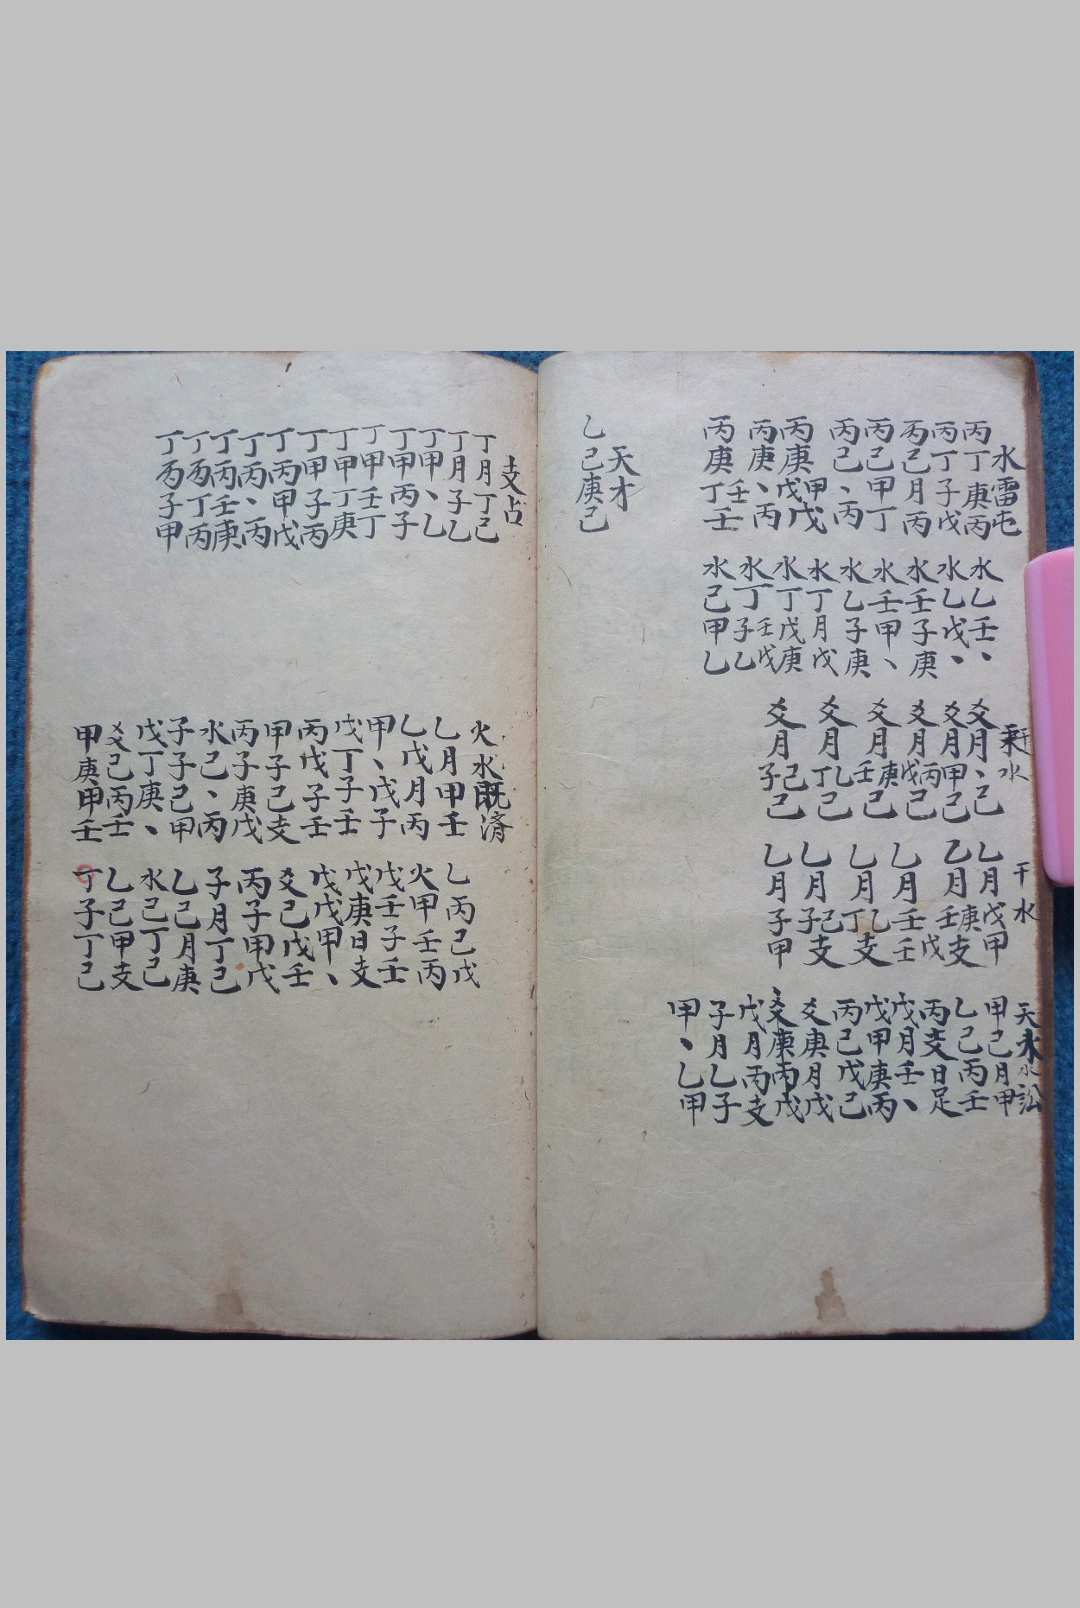 水雷屯
丙丁庚丙
丙丁子戊
丙己月丙
丙己甲丁
丙己、丙
丙庚甲戊戊
丙庚、丙
丙庚壬丁壬
水乙壬、
水乙戊、
水壬子庚
水壬甲、
水乙子庚
水丁月戊
水丁戊庚
水丁壬子戊乙
水己甲乙
天才
乙己庚己
水
爻月、己
爻月甲己
爻月丙戊己
爻月庚壬己
爻月乙丁己
爻月己子己
干水
乙月戊甲
乙月庚壬支
乙月壬戊壬
乙月乙丁支
乙月己子支
乙月子甲
天水訟
甲己月甲
乙己丙壬
丙支日足
戊月壬、
戊甲庚丙
丙己戊己
爻庚月戊
爻庚丙戊
戊月丙支
子月乙子
甲、乙甲
支占
丁月丁己
丁月子乙
丁甲、乙
丁甲丙子
丁甲壬丁
丁甲丁庚
丁甲子丙
丁丙甲戊
丁丙、丙
丁丙壬庚
丁丙丁丙
丁丙子甲
火水既済
乙月甲壬
乙戊月丙
甲、戊子
戊丁子壬
丙戊子壬
甲子己支
丙子庚戊
水己、丙
子子己甲
戊丁庚、
爻己丙壬
甲庚甲壬
乙丙己戊
火甲壬丙
戊壬子壬
戊庚日支
戊戊甲、
爻己戊壬
丙子甲戊
子月丁己
乙己月庚
水己丁己
乙己甲支
丁子丁己